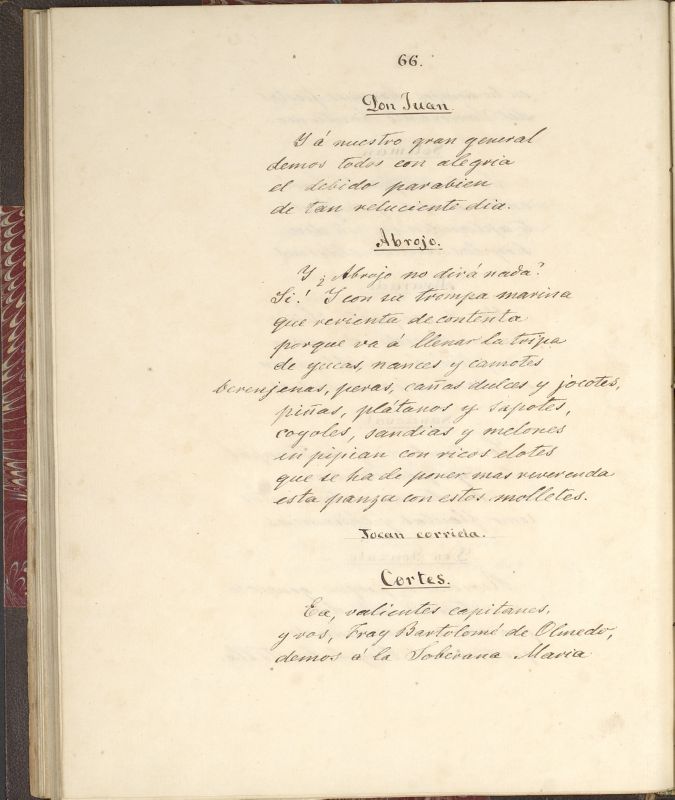 66.
Don Juan.
Y á nuestro gran general
demos todos con alegria
el debido parabien
de tan reluciente dia.
Abrojo.
Y ¿Abrojo no dirá nada?
Si! Y con su trompa marina
que revienta de contenta
porque va á llenar la tripa
de yucas, nances y camotes
berenjenas, peras, cañas dulces y jocotes,
piñas, plátanos y sapotes,
coyoles, sandias y melones
en pipian con ricos elotes
que se ha de poner mas reverenda
esta panza con estos molletes.
Tocan corrida.
Cortes.
Ea, valientes capitanes,
y vos, Fray Bartolomé de Olmedo,
demos á la Soberana Maria